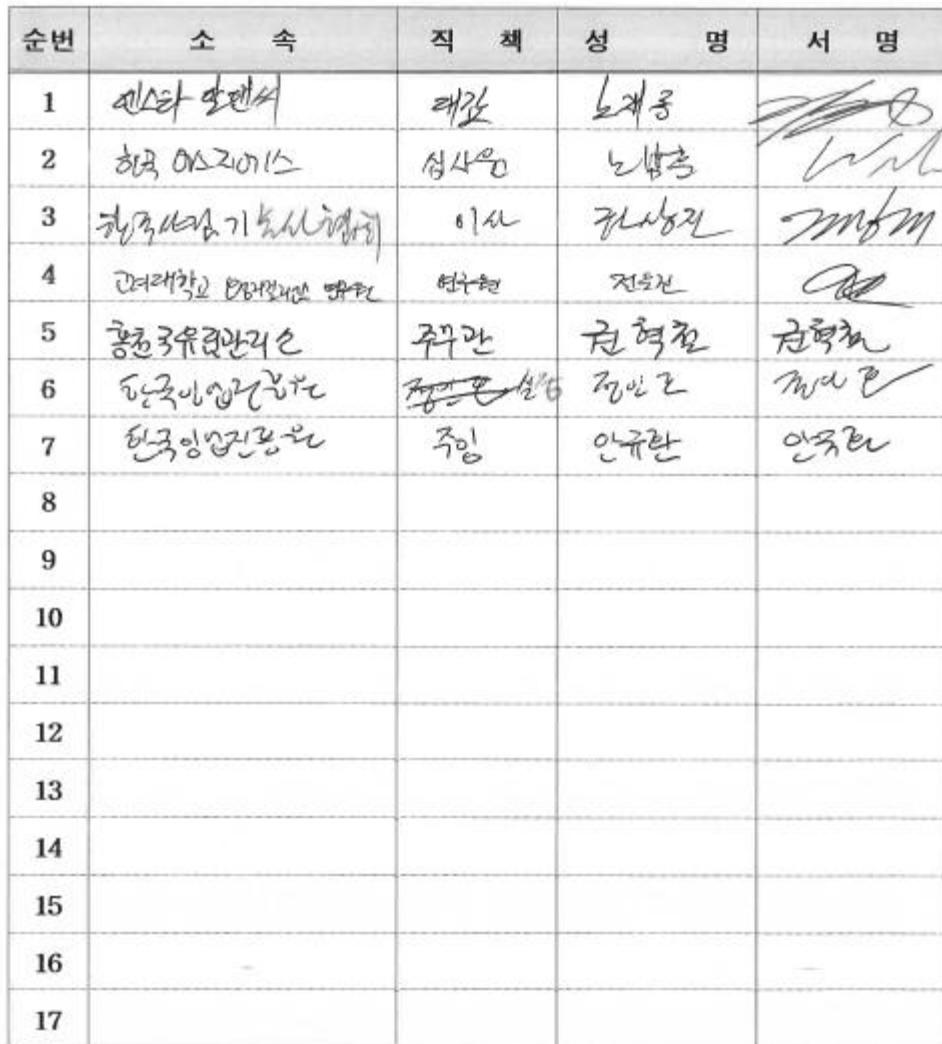 순번 소 속 직 책 성 명 서 명
1 엔스타 알앤씨 대표 노재용
2 한국 에스지에스 심사원 노
3 한국산림기술사협회 이사 권상진
4 고려대학교 연구원 연구원
5 홍천국유림관리소 주무관 권혁철 권혁철
6 한국임업진흥원 실장 정인
7 한국임업진흥원 주임 안규란 안규란
8
9
10
11
12
13
14
15
16
17